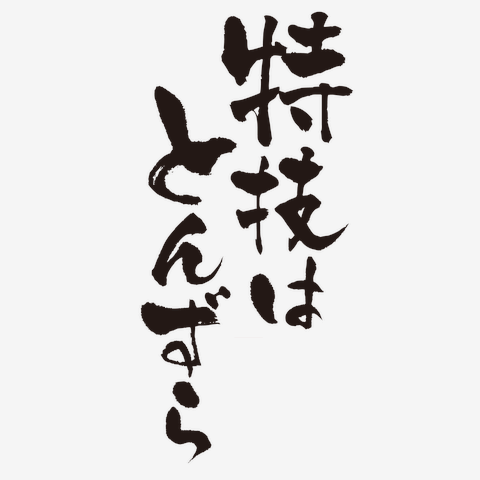 特技は
とんずら